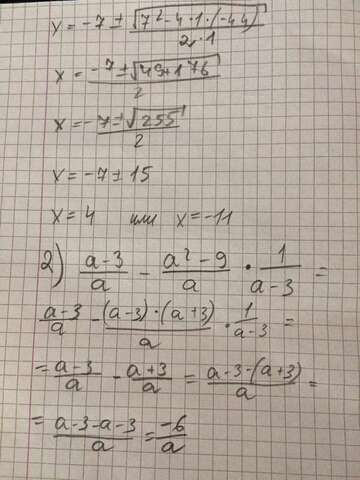 x = -7 ± √(7² - 4·1·(-44)) / 2·1
x = -7 ± √(49+176) / 2
x = - 7 ± √255 / 2
x = -7 ± 15
x = 4 или x = -11
2) (a-3)/a - (a²-9)/a · 1/(a-3) =
(a-3)/a - (a-3)·(a+3)/a · 1/(a-3) =
= (a-3)/a - (a+3)/a = (a-3-(a+3))/a =
= (a-3-a-3)/a = -6/a